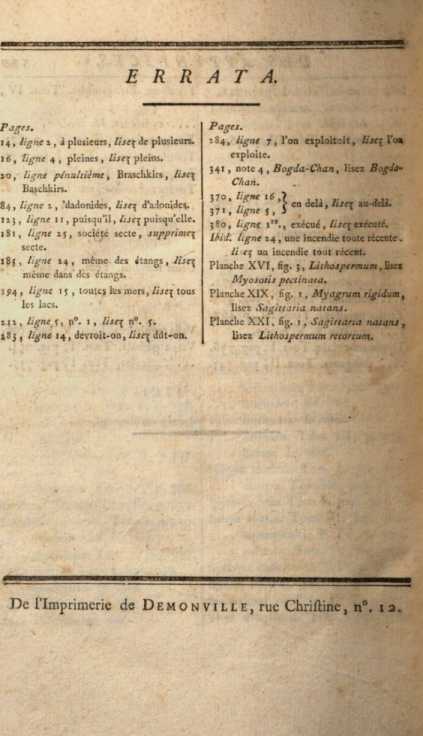 ERRATA.
Pages.
14, ligne 2, à plusieurs, lisez de plusieurs.
16, ligne 4, pleines, lisez pleins.
20, ligne pénultième, Braschkirs, lisez
Baschkirs.
84, ligne 2, 'dadonides, lisez d'adonides.
123, ligne 11, puisqu'il, lisez puisqu'elle.
181, ligne 25, société secte, supprimez
secte.
185, ligne 24, même des étangs, lisez
même dans des étangs.
194, ligne 15, toutes les mers, lisez tous
les lacs.
212, ligne 5, n°. 1, lisez n°. 5.
283, ligne 14, devroit-on, lisez dût-on.
Pages.
284, ligne 7, l'on exploitoit, lisez l'on
exploite.
341, note 4, Bogda-Chan, lisez Bogda-
Chan.
370, ligne 16,
371, ligne 5, } en delà, lisez au-delà.
380, ligne 1re., exécué, lisez exécuté.
Ibid. ligne 24, une incendie toute récente.
li ez un incendie tout récent.
Planche XVI, fig. 3, Lithospermum, lisez
Myosotis pectinata.
Planche XIX, fig. 1, Myagrum rigidum,
lisez Sagittaria natans.
Planche XXI, fig. 1, Sagittaria natans,
lisez Lithospermum retortum.
De l'Imprimerie de DEMONVILLE, rue Christine, n°. 12.